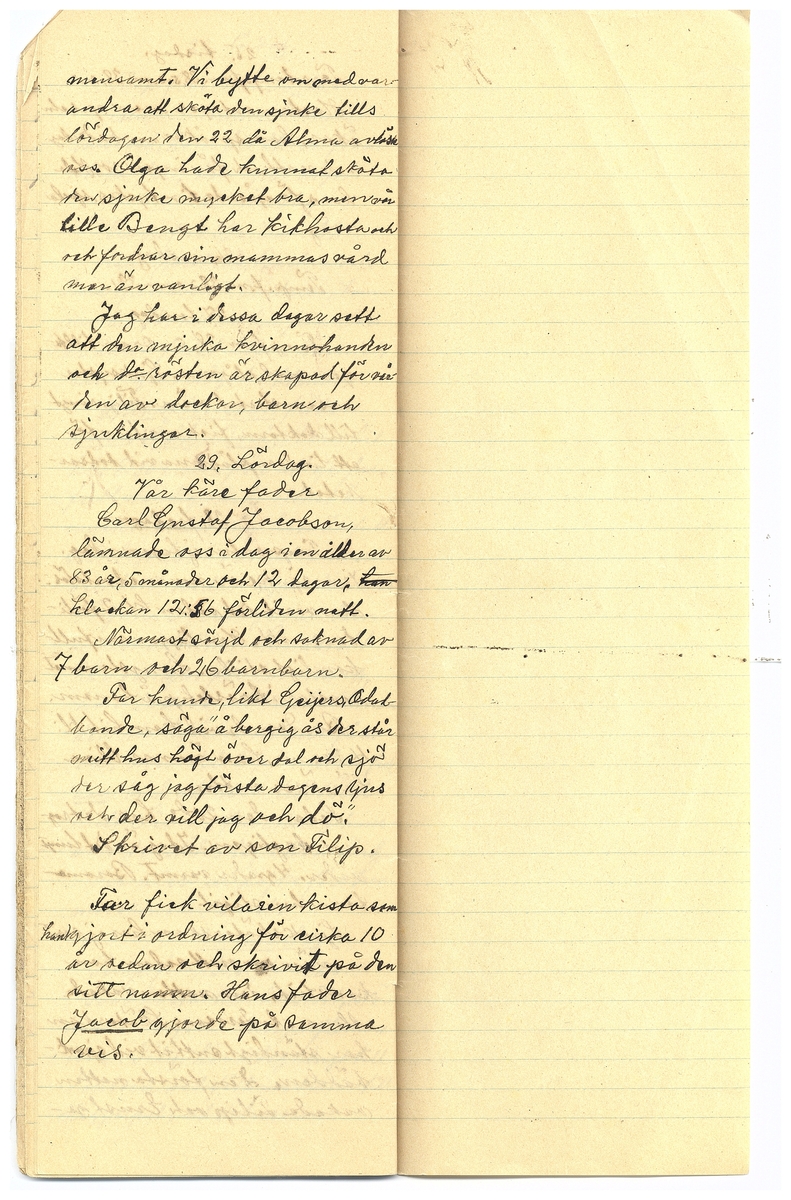 mensamt. Vi bytte om med var-
andra att sköta den sjuke tills
lördagen den 22 då Alma avlöste
oss. Olga hade kunnat sköta
den sjuke mycket bra, men vår
lille Bengt har kikhosta och
och fordrar sin mammas vård
mer än vanligt.
Jag har i dessa dagar sett
att den mjuka kvinnohanden
och do rösten är skapad för vår-
den av dockor, barn och
sjuklingar.
29. Lördag.
Vår käre fader
Carl Gustaf Jacobson,
lämnade oss i dag i en ålder av
83 år, 5 månader och 12 dagar, han
klockan 12:56 förliden natt.
Närmast sörjd och saknad av
7 barn och 26 barnbarn.
Far kunde, likt Geijers, Odal-
bonde, säga "å bergig ås der står
mitt hus högt över dal och sjö
der såg jag första dagens ljus
och der vill jag och dö".
Skrivet av son Filip.
Far fick vila i en kista som
han gjort i ordning för cirka 10
år sedan och skrivit på den
sitt namn. Hans fader
Jacob gjorde på samma
vis.